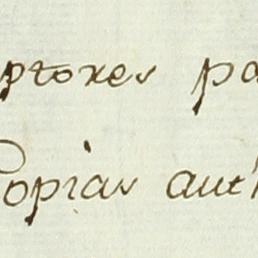 ptores pa
Copias aut